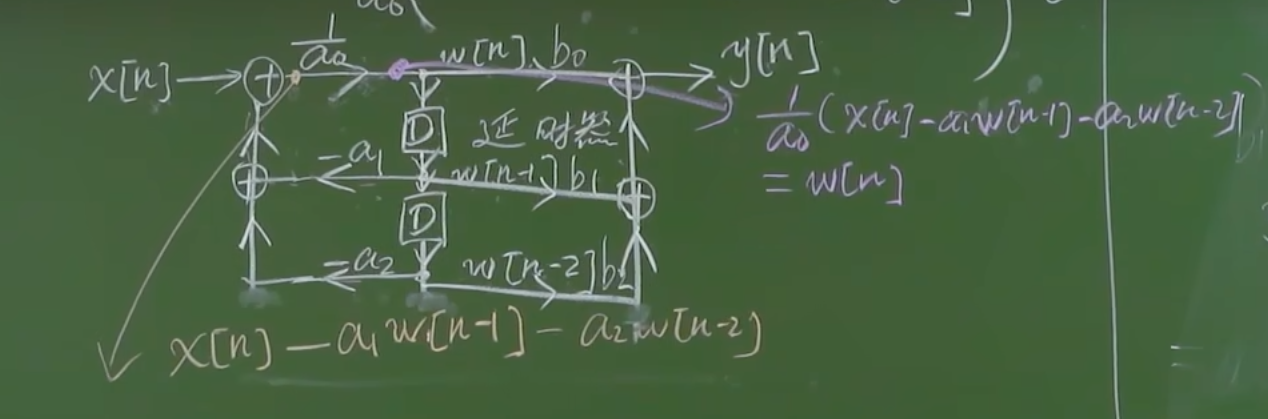 a₀(
]
1/a₀
x[n] w[n] b₀ y[n]
D 延时器
-a₁ w[n-1] b₁
D
-a₂ w[n-2] b₂
x[n] - a₁w[n-1] - a₂w[n-2]
1/a₀ (x[n] - a₁w[n-1] - a₂w[n-2])
= w[n]